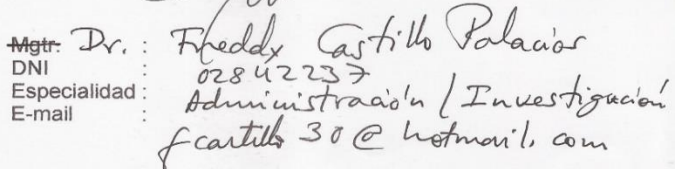 ~~Mgtr.~~ Dr. : Freddy Castillo Palacios
DNI : 02842237
Especialidad : Administración / Investigación
E-mail : fcastillo30@hotmail.com